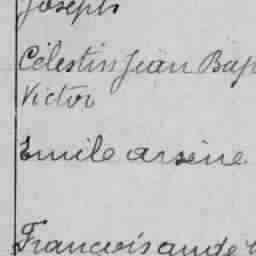 Joseph
Célestin Jean Bap
Victor
Emile arsène
Francois ange